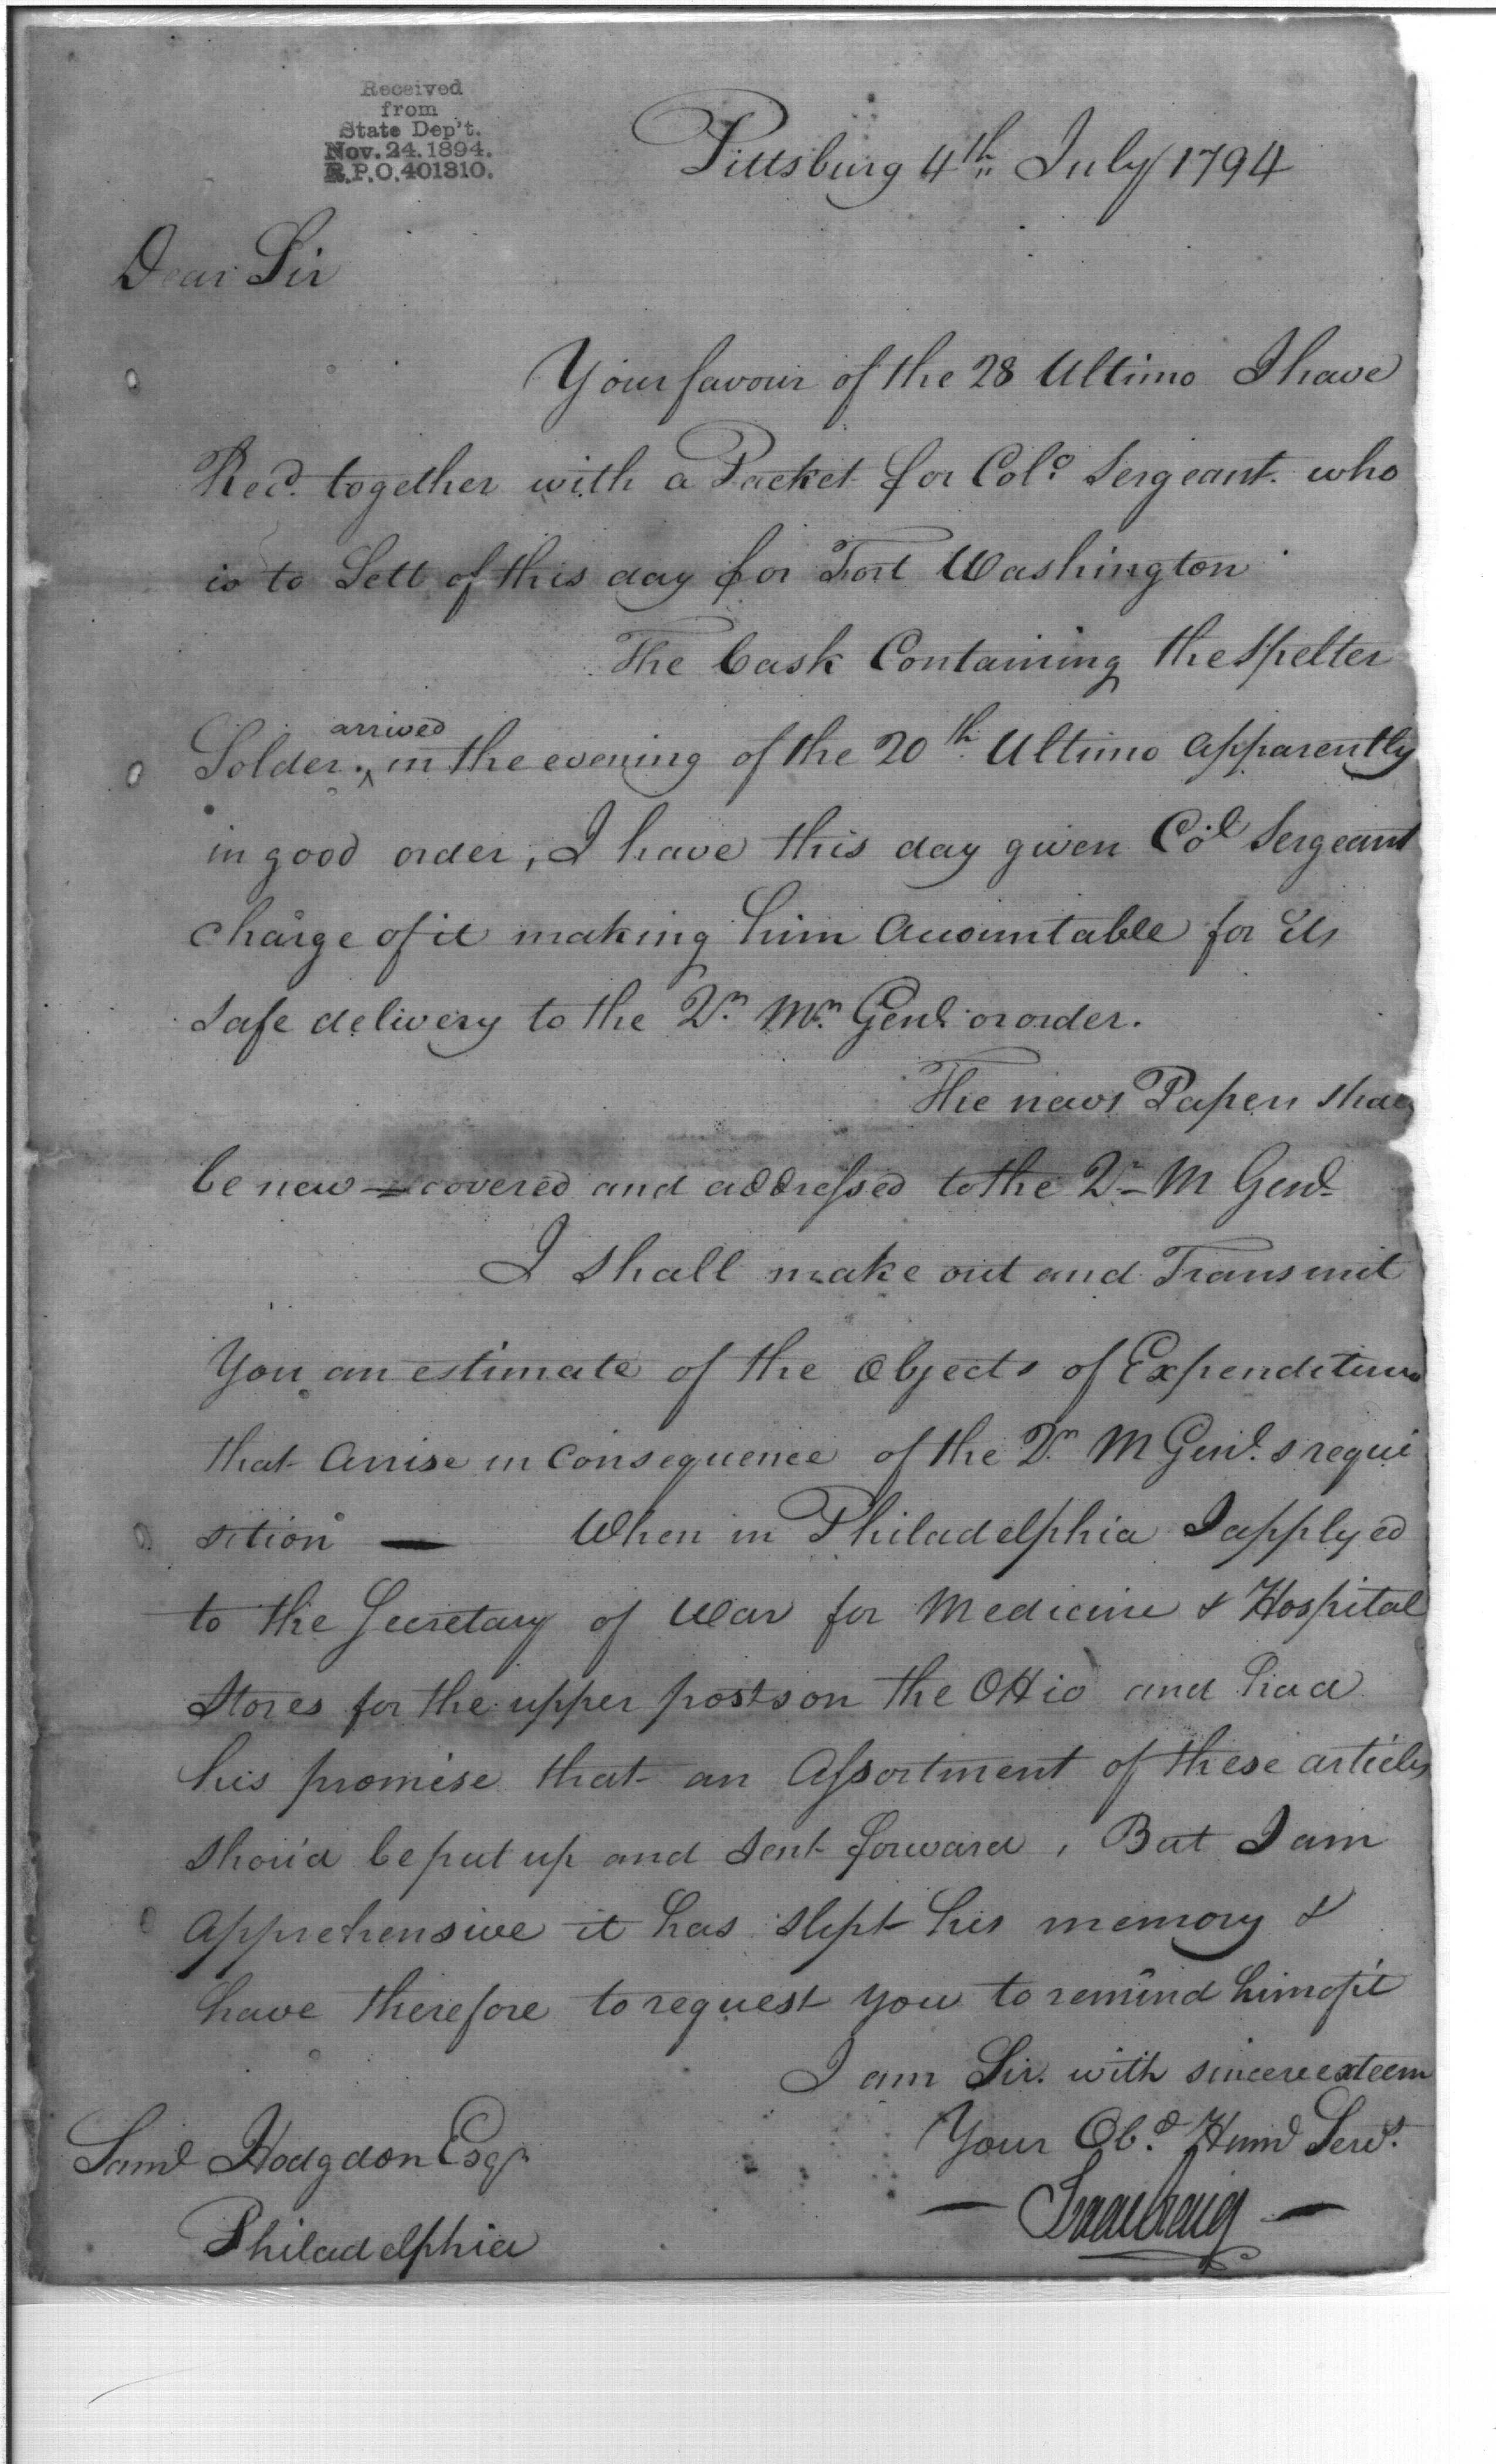 Received
from
State Dep't.
Nov. 24. 1894.
R.P.O. 401310.
Pittsburg 4th July 1794
Dear Sir
Your favour of the 28 Ultimo I have
Recd. together with a Packet for Colo. Sergeant. who
is to Sett of this day for Fort Washington
The Cask Containing the Spelter
Solder. arrived in the evening of the 20th Ultimo apparently
in good order, I have this day given Col Sergeant
charge of it making him Accountable for its
safe delivery to the Qr. Mr. Genl. or order.
The news Papers shall
be new-covered and addressed to the Qr M Genl
I shall make out and Transmit
You an estimate of the Objects of Expenditure
that Arrise in Consequence of the Qr. M Genl.s requi
sition — When in Philadelphia I applyed
to the Secretary of War for Medicine & Hospital
Stores for the upper posts on the OHio and had
his promise that an Assortment of these articles
shou'd be put up and sent forward, But I am
Apprehensive it has slipt his memory &
have therefore to request you to remind him of it
I am Sir. with sincere esteem
Your Obd. Humd Servt.
— Isaac Craig —
Saml Hodgdon Esqr.
Philadelphia